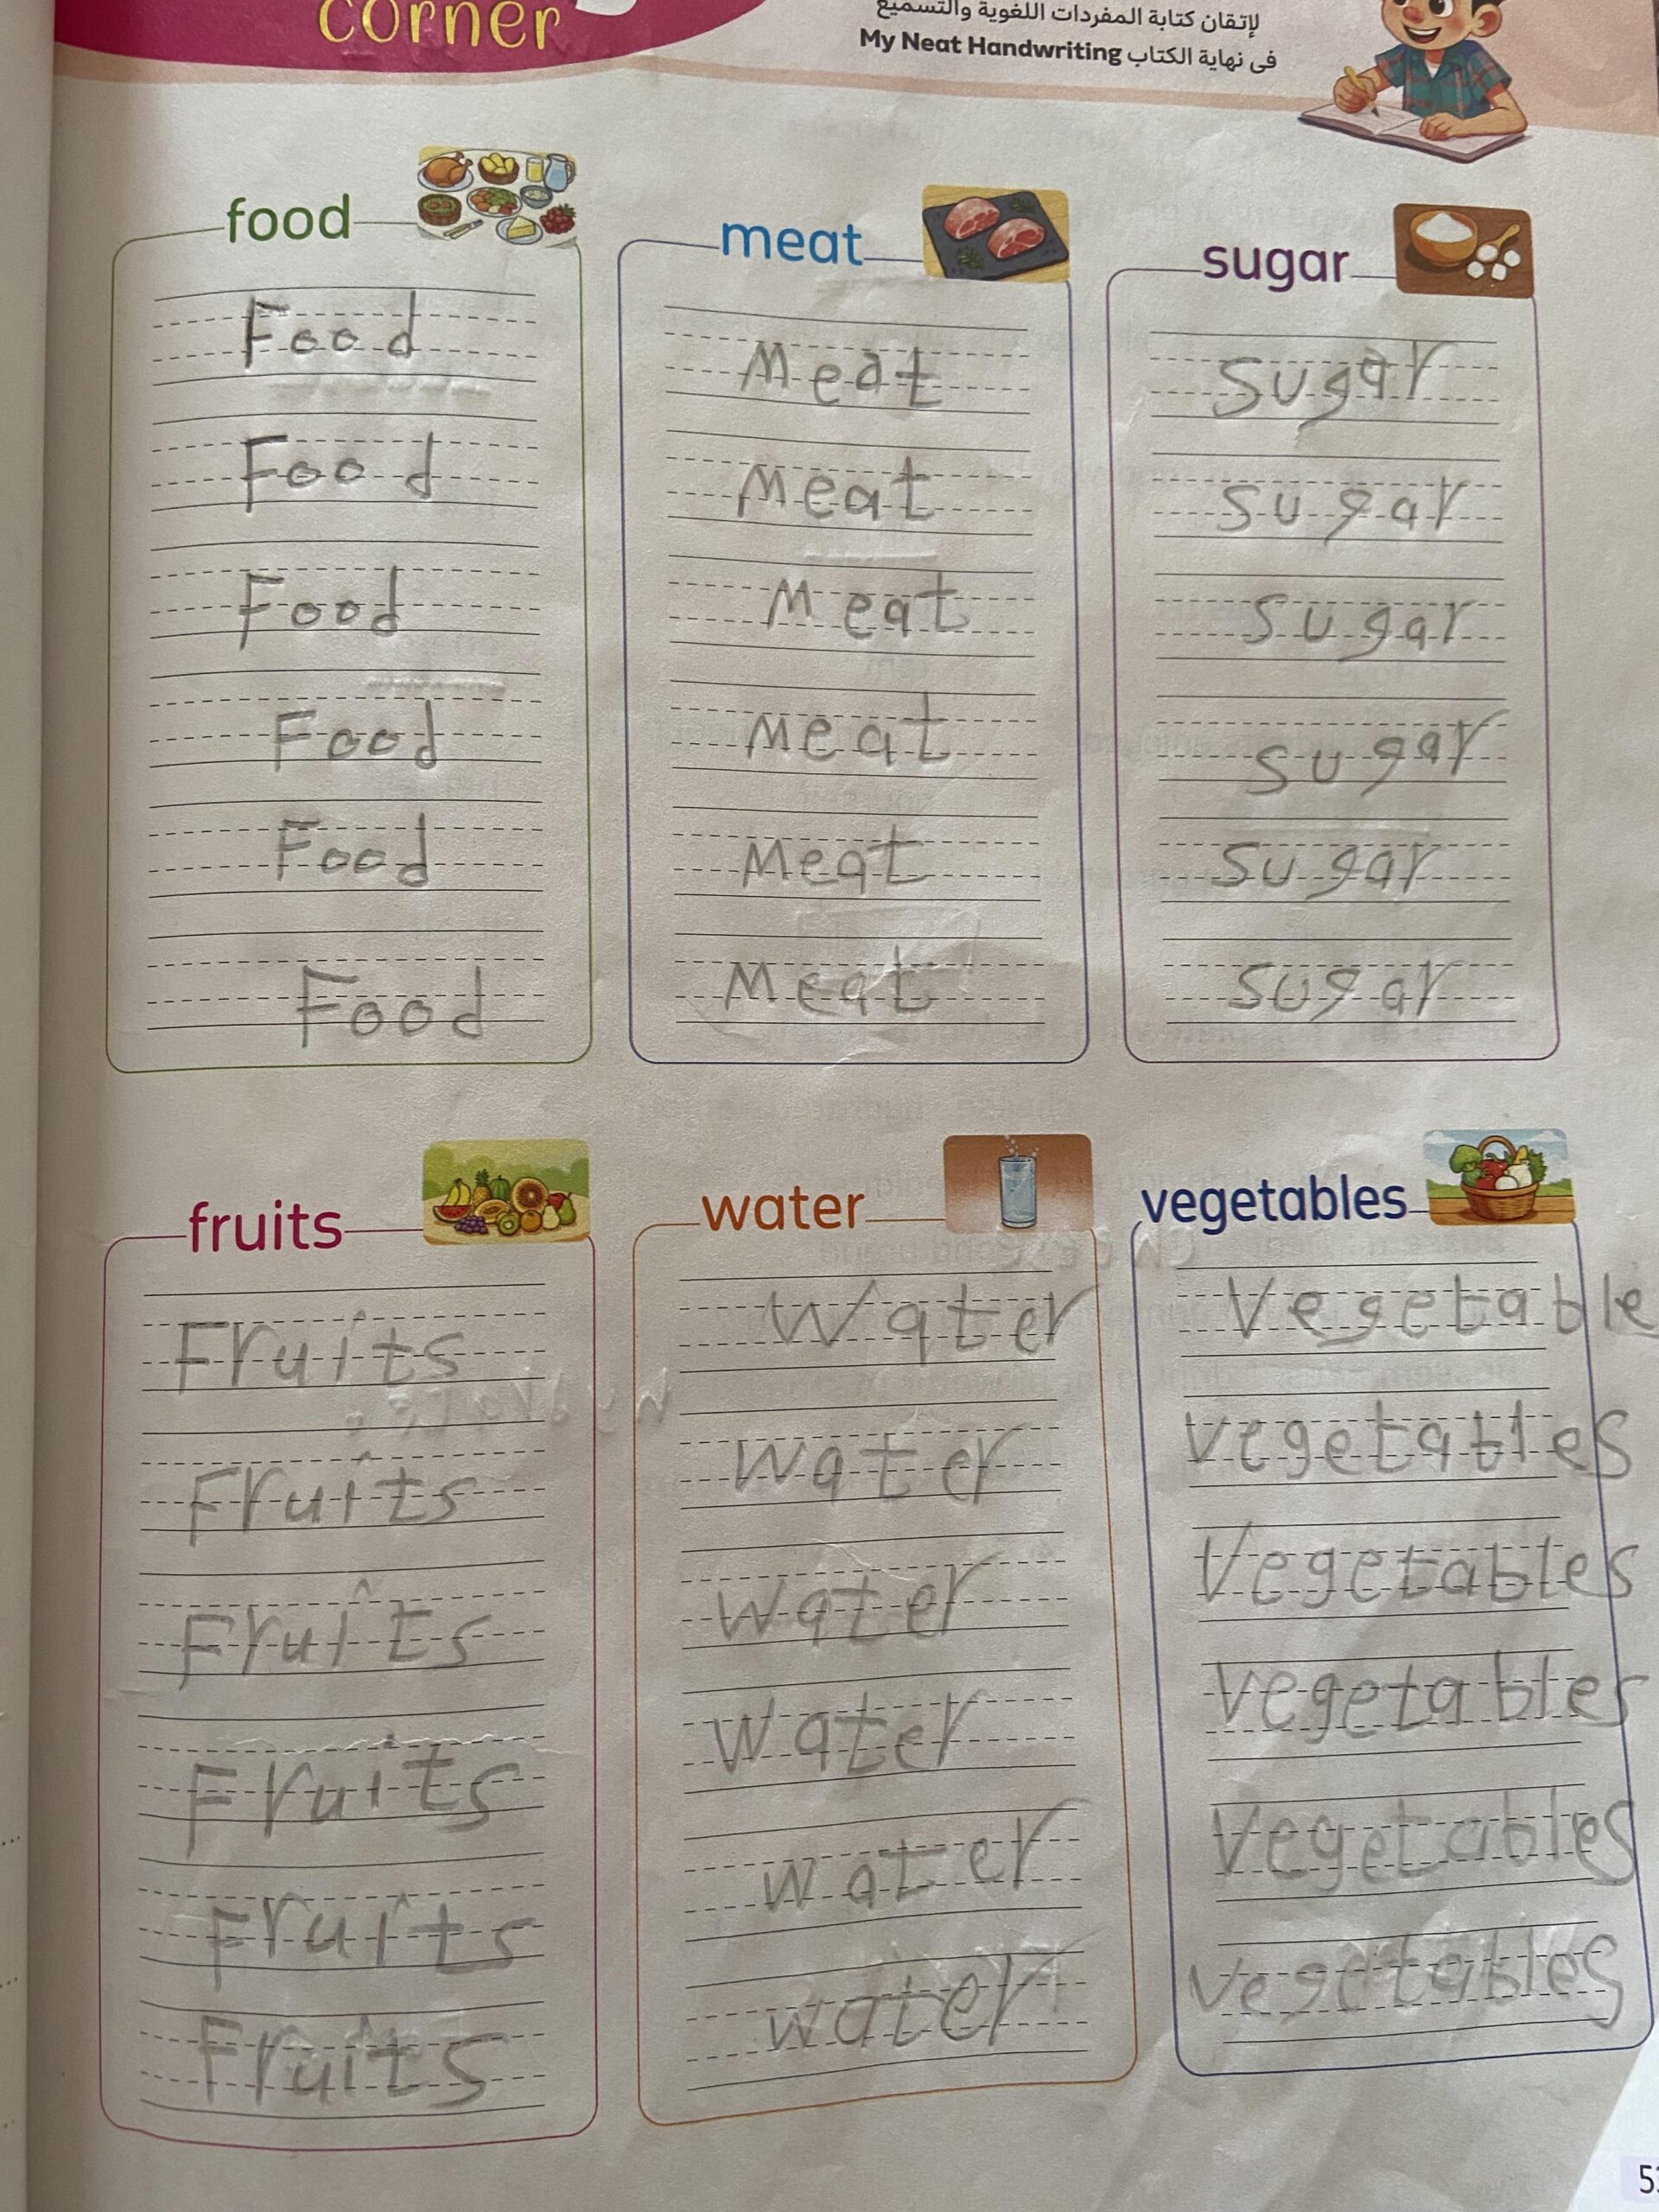 corner
لإتقان كتابة المفردات اللغوية والتسميع
فى نهاية الكتاب My Neat Handwriting
food
Food
Food
Food
Food
Food
Food
meat
Meat
Meat
Meat
Meat
Meat
Meat
sugar
sugar
sugar
sugar
sugar
sugar
sugar
fruits
Fruits
Fruits
Fruits
Fruits
Fruits
Fruits
water
Water
water
water
water
water
water
vegetables
Vegetable
vegetables
Vegetables
vegetables
vegetables
vegetables